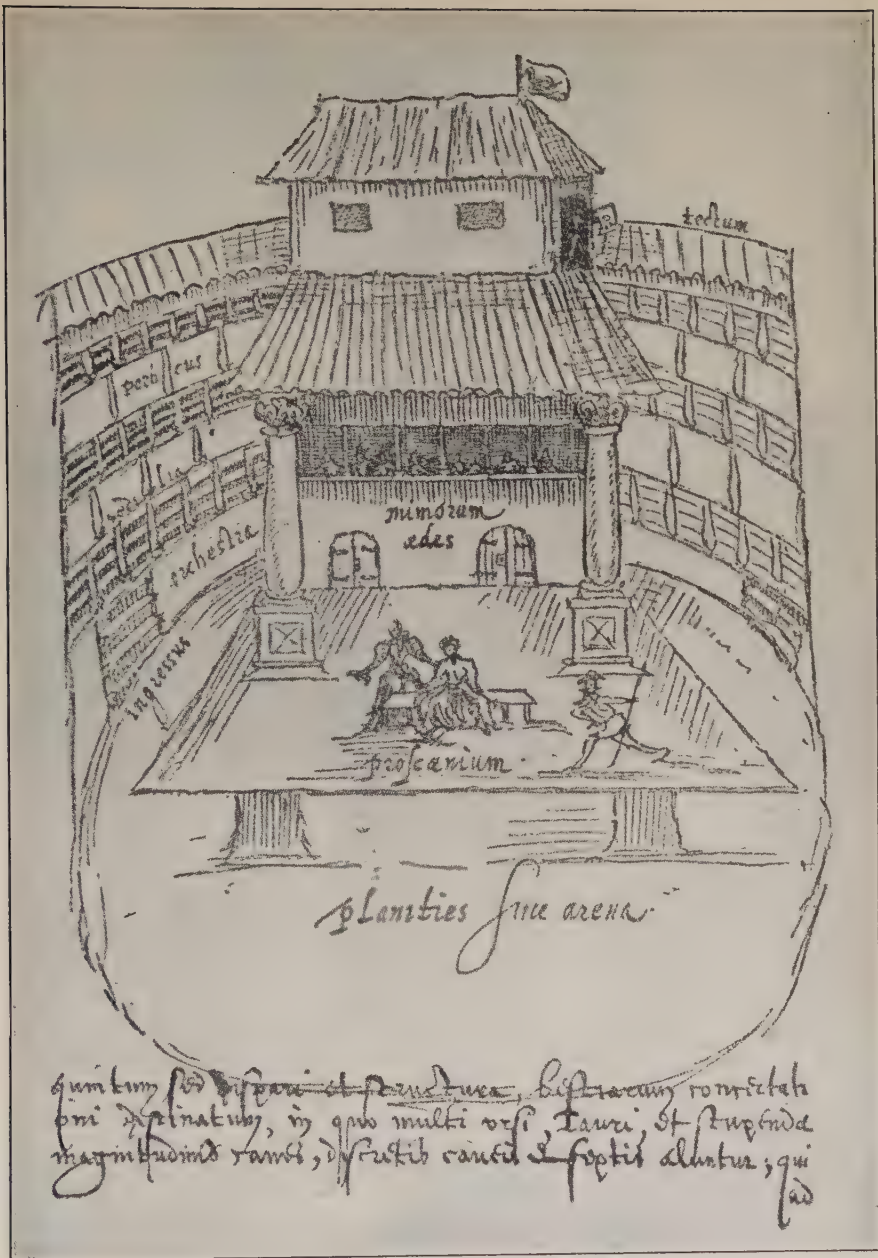 tectum
porticus
sedilia
orchestra
mimorum
ædes
ingressus
proscænium.
planities siue arena.
quintum sed dispari et structura, bestiarum concertati
oni destinatum, in quo multi vrsi, Tauri, et stupendæ
magnitudinis canes, discretis caueis & septis aluntur, qui
ad